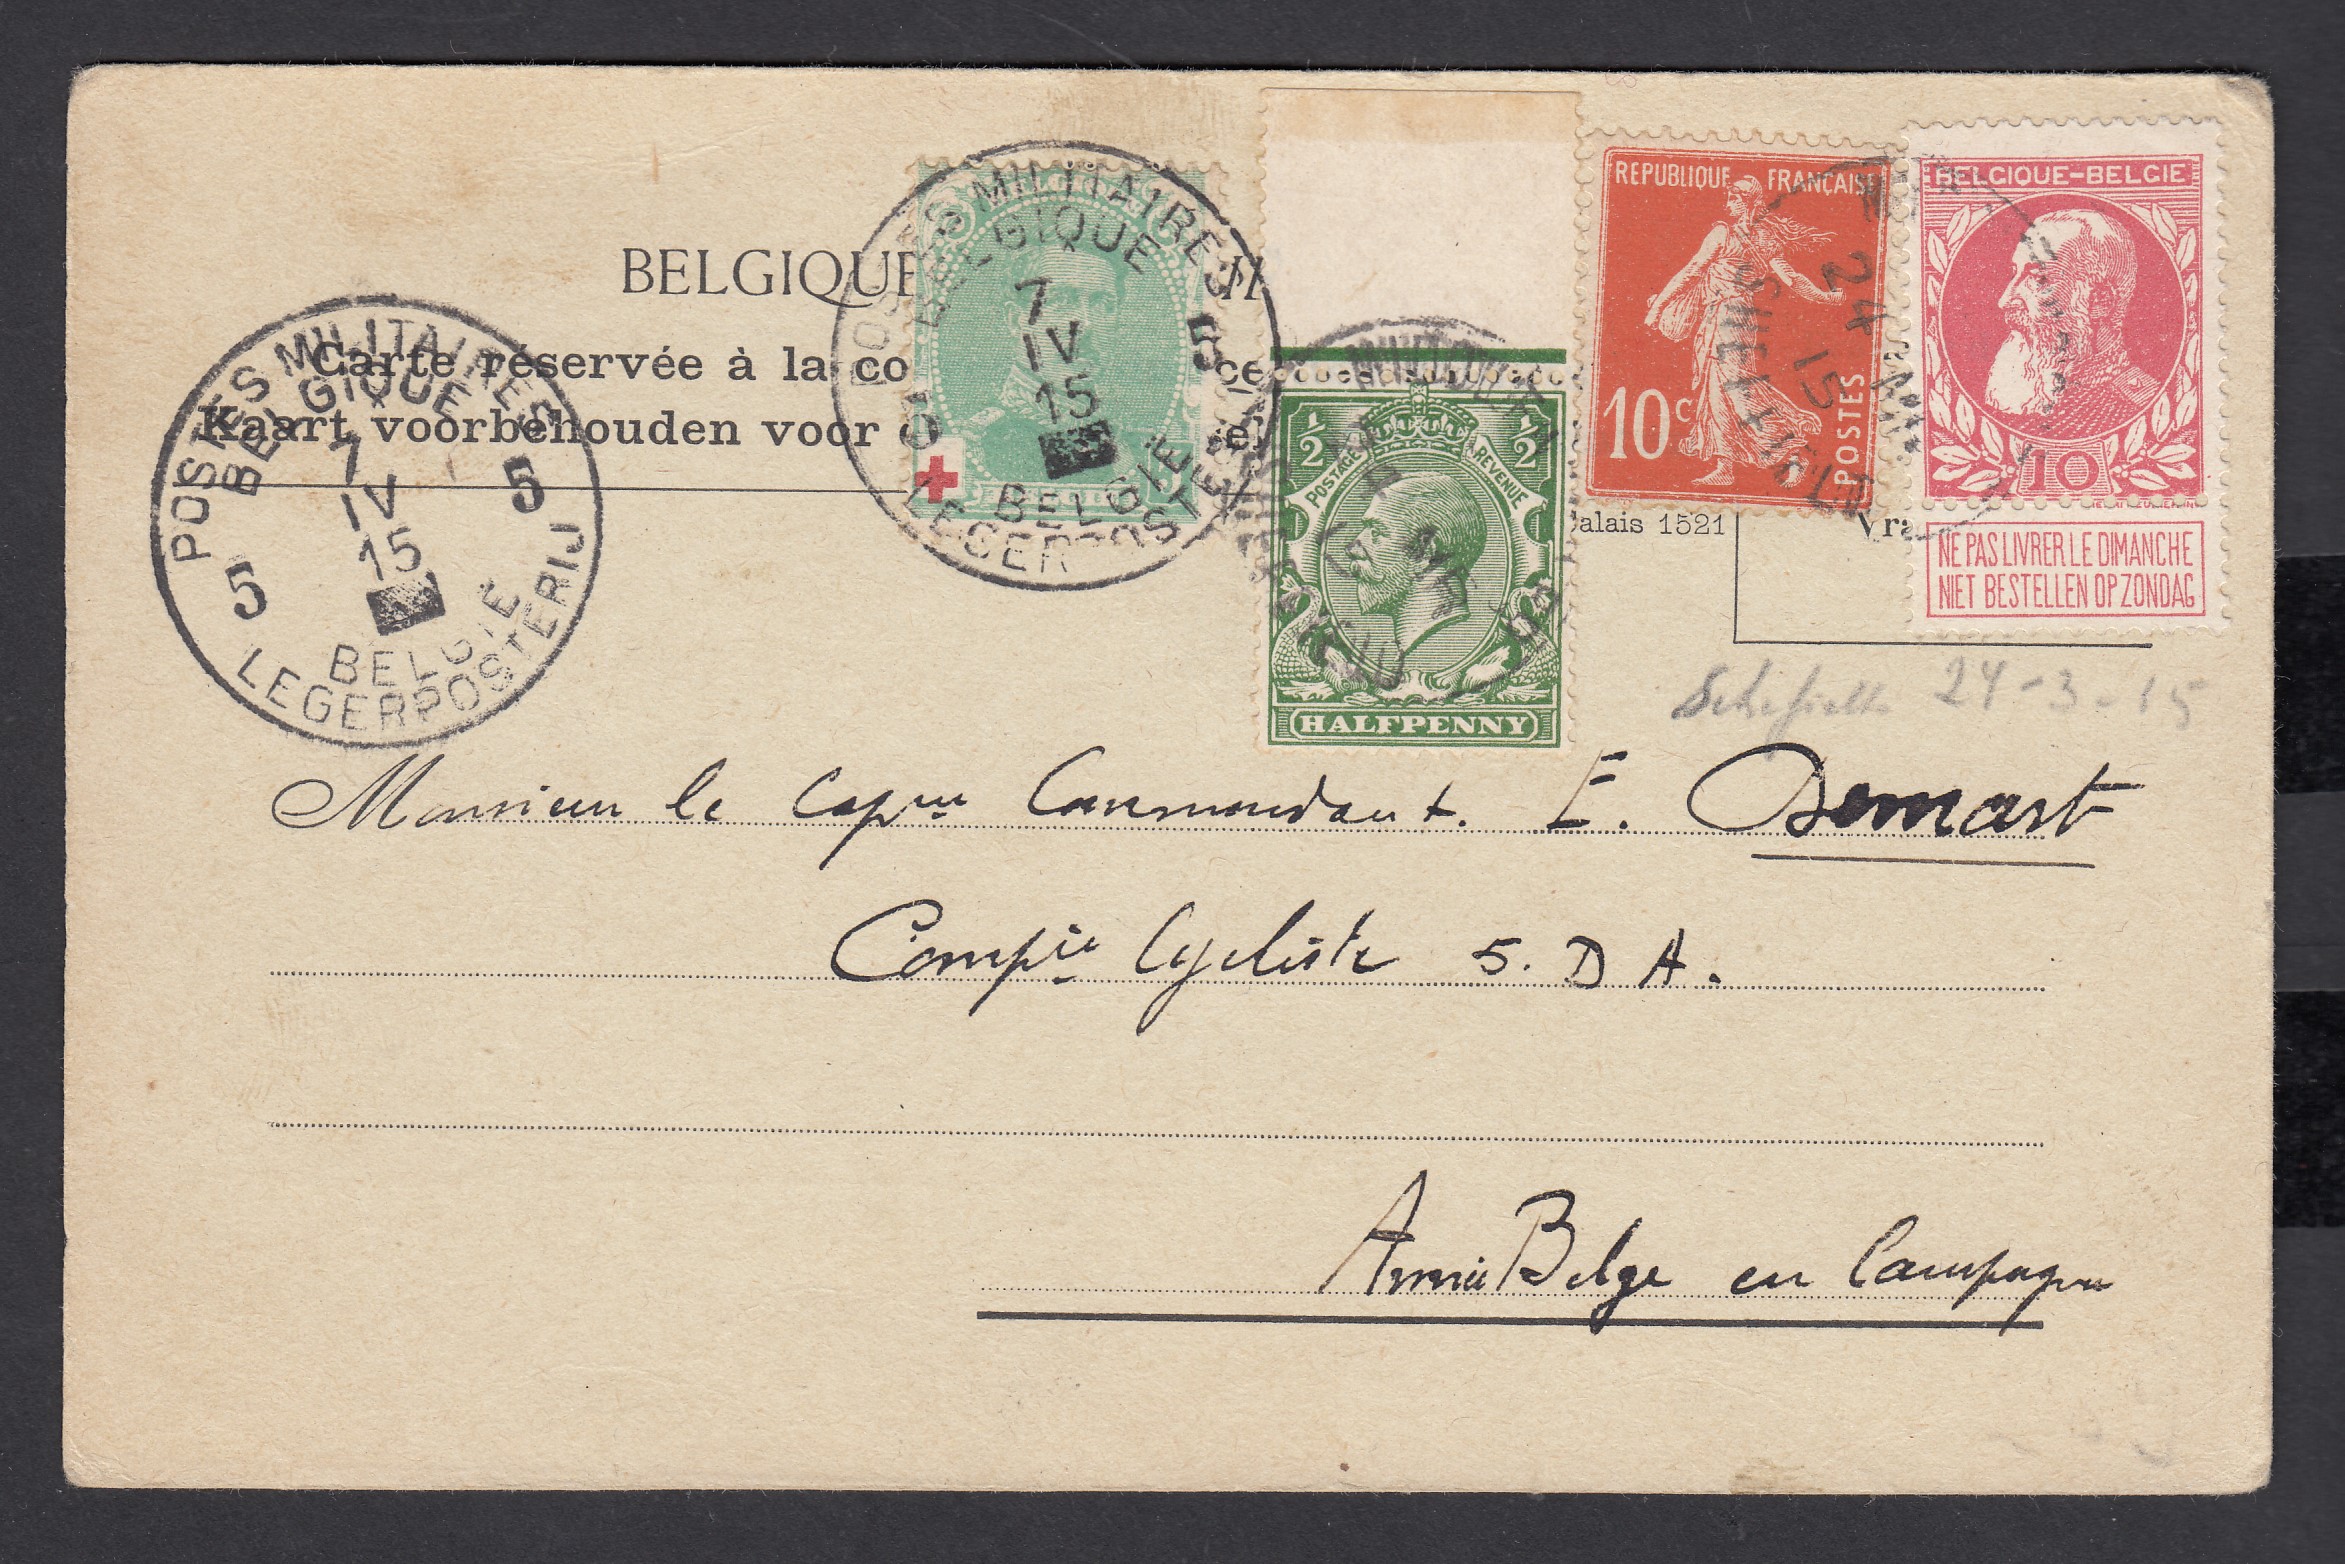 BELGIQUE
Carte réservée à la co ce
Kaart voorbehouden voor
POSTES MILITAIRES
BELGIQUE
7
IV
15
5 5
BELGIE
LEGERPOSTERIJ
POSTES MILITAIRES
BELGIQUE
7
IV
15
5
BELGIE
LEGERPOSTE
½ ½
POSTAGE REVENUE
HALFPENNY
REPUBLIQUE FRANÇAISE
10c
POSTES
24
15
BELGIQUE-BELGIE
10
NE PAS LIVRER LE DIMANCHE
NIET BESTELLEN OP ZONDAG
alais 1521
Vra
24-3-15
Monsieur le Capne Commandant. E. Demart
Compie Cycliste 5. D A.
Armée Belge en Campagne